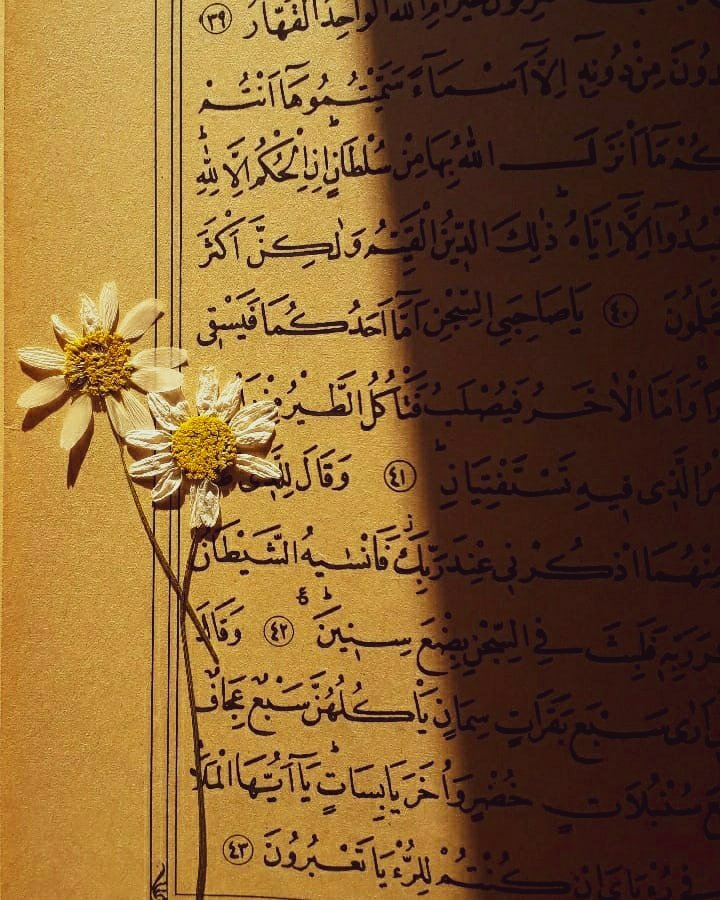 خَيْرٌ اَمِ اللّٰهُ الْوَاحِدُ الْقَهَّارُ ﴿٣٩﴾
مِنْ دُونِهٖٓ اِلَّٓا اَسْمَٓاءً سَمَّيْتُمُوهَٓا اَنْتُمْ
مَٓا اَنْزَلَ اللّٰهُ بِهَا مِنْ سُلْطَانٍۜ اِنِ الْحُكْمُ اِلَّا لِلّٰهِۜ
اِلَّٓا اِيَّاهُۜ ذٰلِكَ الدّٖينُ الْقَيِّمُ وَلٰكِنَّ اَكْثَرَ
﴿٤٠﴾ يَا صَاحِبَيِ السِّجْنِ اَمَّٓا اَحَدُكُمَا فَيَسْقٖي
وَاَمَّا الْاٰخَرُ فَيُصْلَبُ فَتَأْكُلُ الطَّيْرُ مِنْ
الَّذٖي فٖيهِ تَسْتَفْتِيَانِۜ ﴿٤١﴾ وَقَالَ لِلَّذٖي
مِنْهُمَا اذْكُرْنٖي عِنْدَ رَبِّكَۘ فَاَنْسٰيهُ الشَّيْطَانُ
رَبِّهٖ فَلَبِثَ فِي السِّجْنِ بِضْعَ سِنٖينَۜ ﴿٤٢﴾ وَقَالَ
سَبْعَ بَقَرَاتٍ سِمَانٍ يَأْكُلُهُنَّ سَبْعٌ عِجَافٌ
سُنْبُلَاتٍ خُضْرٍ وَاُخَرَ يَابِسَاتٍۜ يَٓا اَيُّهَا الْمَلَأُ
فٖي رُؤْيَايَ اِنْ كُنْتُمْ لِلرُّءْيَا تَعْبُرُونَ ﴿٤٣﴾